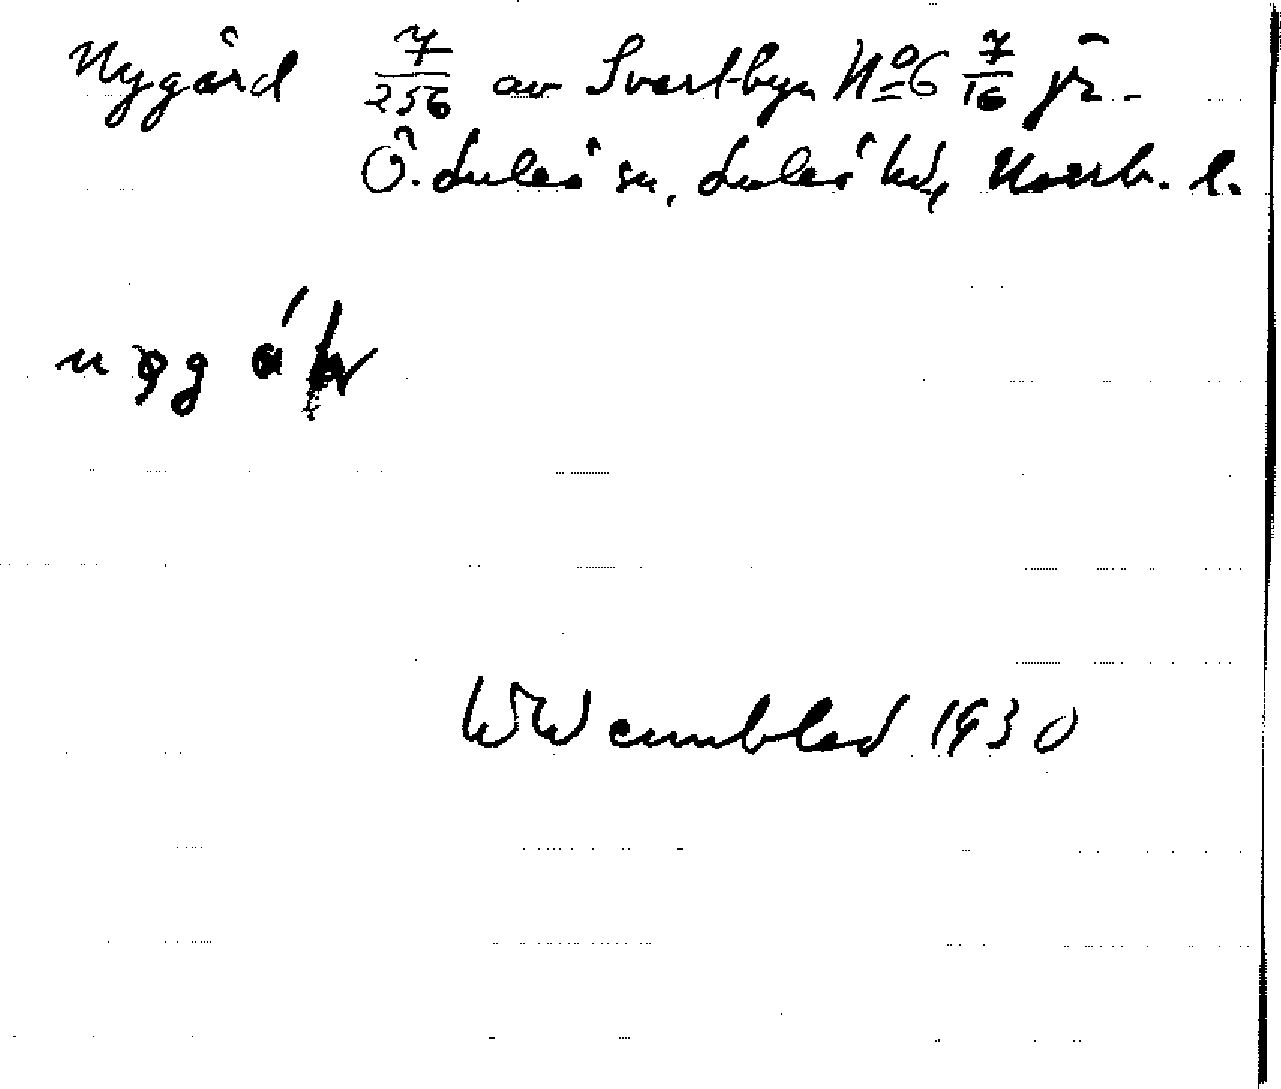 Nygård 7/256 av Svartbyn No 6 7/16 jr.
Ö. Luleå sn, Luleå hd, Norrb. l.
W Wennblad 1930